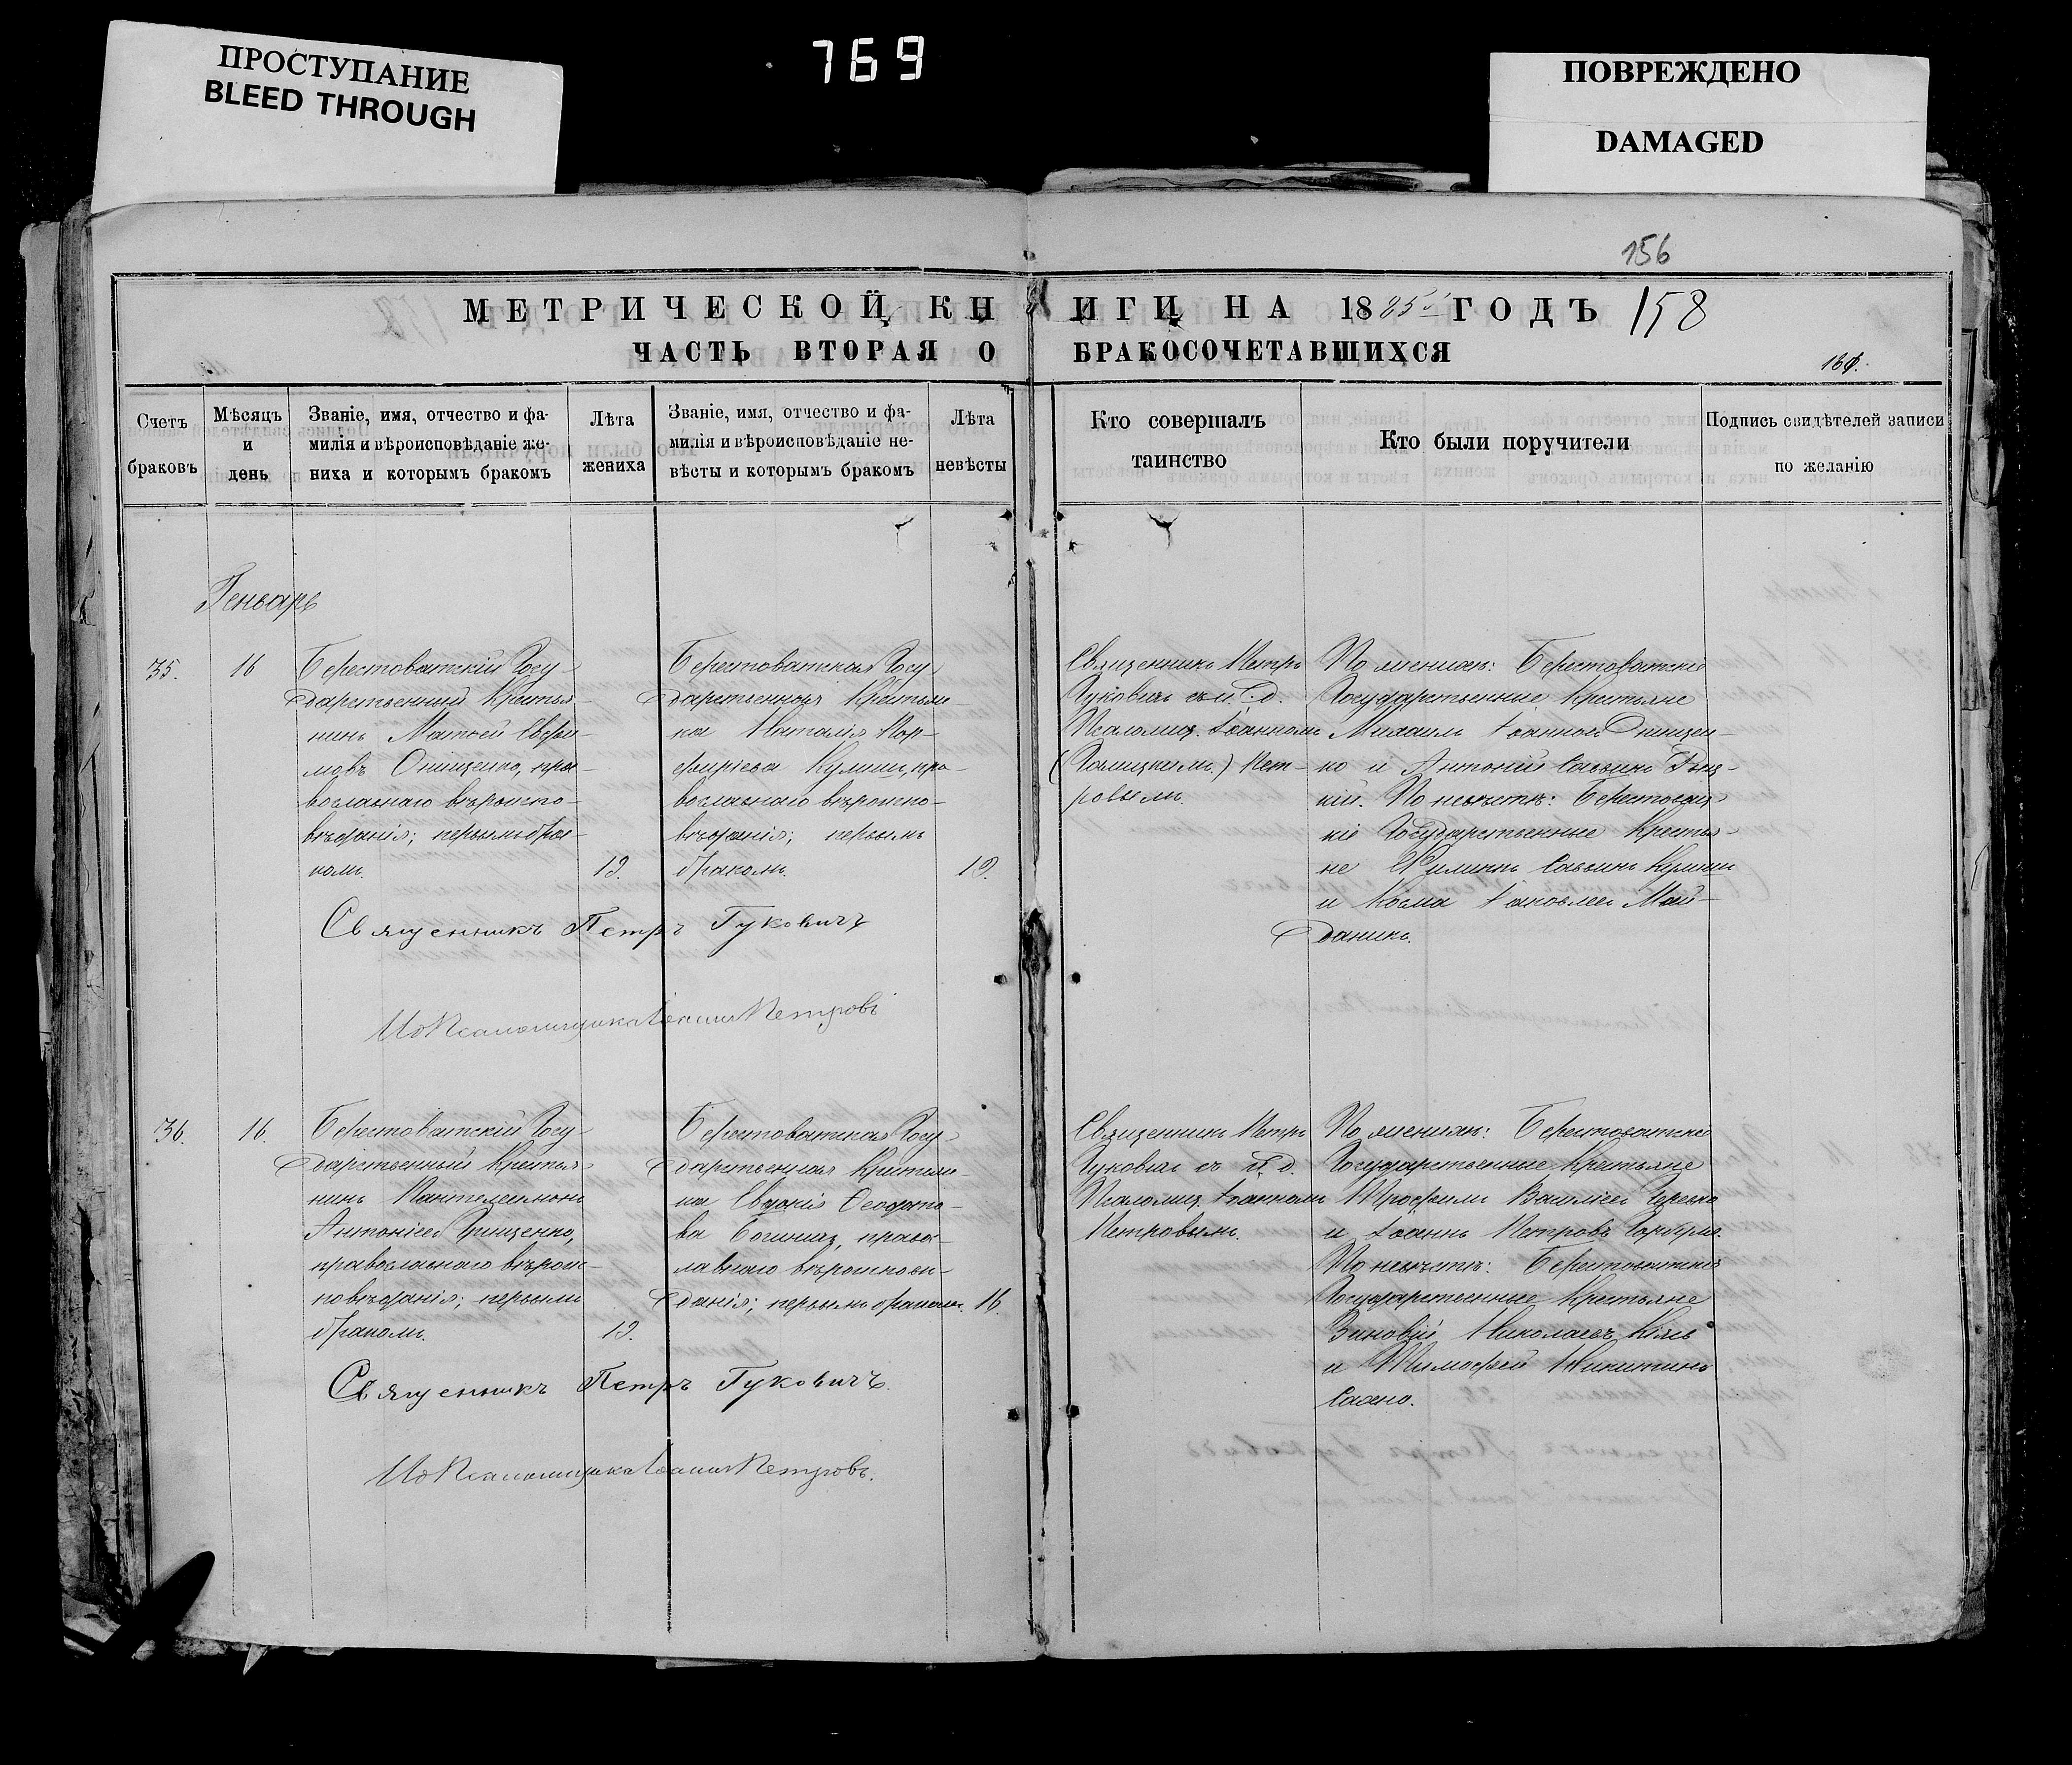 ПРОСТУПАНИЕ
BLEED THROUGH
769
ПОВРЕЖДЕНО
DAMAGED
156
МЕТРИЧЕСКОЙ КНИГИ НА 1885й ГОДЪ 158
ЧАСТЬ ВТОРАЯ О БРАКОСОЧЕТАВШИХСЯ
Счетъ
браковъ
Мѣсяцъ
и
день
Званіе, имя, отчество и фа-
милія и вѣроисповѣданіе же-
ниха и которымъ бракомъ
Лѣта
жениха
Званіе, имя, отчество и фа-
милія и вѣроисповѣданіе не-
вѣсты и которымъ бракомъ
Лѣта
невѣсты
Кто совершалъ
таинство
Кто были поручители
Подпись свидѣтелей записи
по желанію
Геньварь
35.
16
Берестоватскій Госу-
дарственный Крестья-
нинъ Матѳей Евфи-
мовъ Онищенко, пра-
вославнаго вѣроиспо-
вѣданія; первымъ бра-
комъ.
19.
Берестоватская Госу-
дарственная Крестьян-
ка Наталія Пор-
фиріева Кулиш, пра-
вославнаго вѣроиспо-
вѣданія; первымъ
бракомъ.
19.
Священникъ Петръ
Гуковичъ съ И. Д.
Псаломщ. Іоанномъ
Пет-
ровымъ.
По женихѣ: Берестоватскіе
Государственные Крестьяне
Михаилъ Іоанновъ Онищен-
ко и Антоній Саввинъ
кій. По невѣстѣ: Берестоват-
кіе Государственные Крестья-
не Филиппъ Саввинъ Кулиш
и Косма Іаковлев Май-
даникъ.
Священникъ Петръ Гуковичъ
И д Псаломщика Іоаннъ Петровъ
36.
16.
Берестоватскій Госу-
дарственный Крестья-
нинъ Пантелеимонъ
Антоніевъ Грищенко,
православнаго вѣроис-
повѣданія; первымъ
бракомъ.
19.
Берестоватская Госу-
дарственная Крестьян-
ка Евдокія Ѳеодото-
ва правос-
лавнаго вѣроисповѣ-
данія; первымъ бракомъ.
16.
Священникъ Петръ
Гуковичъ съ И. д.
Псаломщ. Іоанномъ
Петровымъ.
По женихѣ: Берестоватскіе
Государственные Крестьяне
Трофимъ Василіев
и Іоаннъ Петровъ
По невѣстѣ: Берестоватскіе
Государственные Крестьяне
Зиновій Николаевъ Кіяь
и Тимофей Никитинъ
Сахно.
Священникъ Петръ Гуковичъ.
И д Псаломщика Іоаннъ Петровъ.